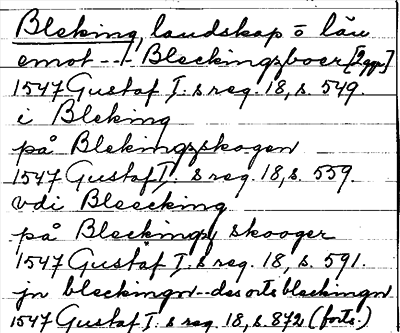 Bleking, landskap o län
emot --- Bleckingzboer [2ggr]
1547 Gustaf I:s reg. 18, s. 549.
i Bleking
på Blekingzskogen
1547 Gustaf I:s reg. 18, s. 559.
vdi Bleecking
på Bleckingz skooger
1547 Gustaf I:s reg. 18, s. 591.
jn bleckingn -- des orts bleckingn
1547 Gustaf I:s reg. 18, s. 872 (forts.)